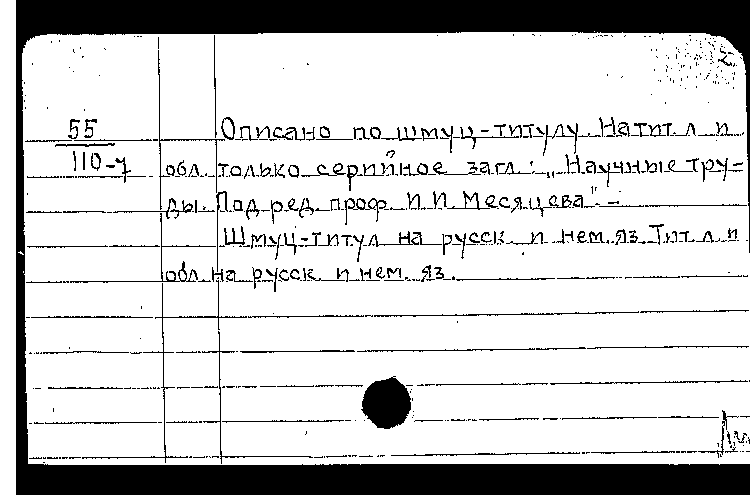 55
110-7
Описано по шмуц-титулу. На тит. л и
обл. только серийное загл.: „Научные тру-
ды. Под ред. проф. И. И. Месяцева". –
Шмуц-титул на русск. и нем. яз. Тит. л и
обл. на русск. и нем. яз.